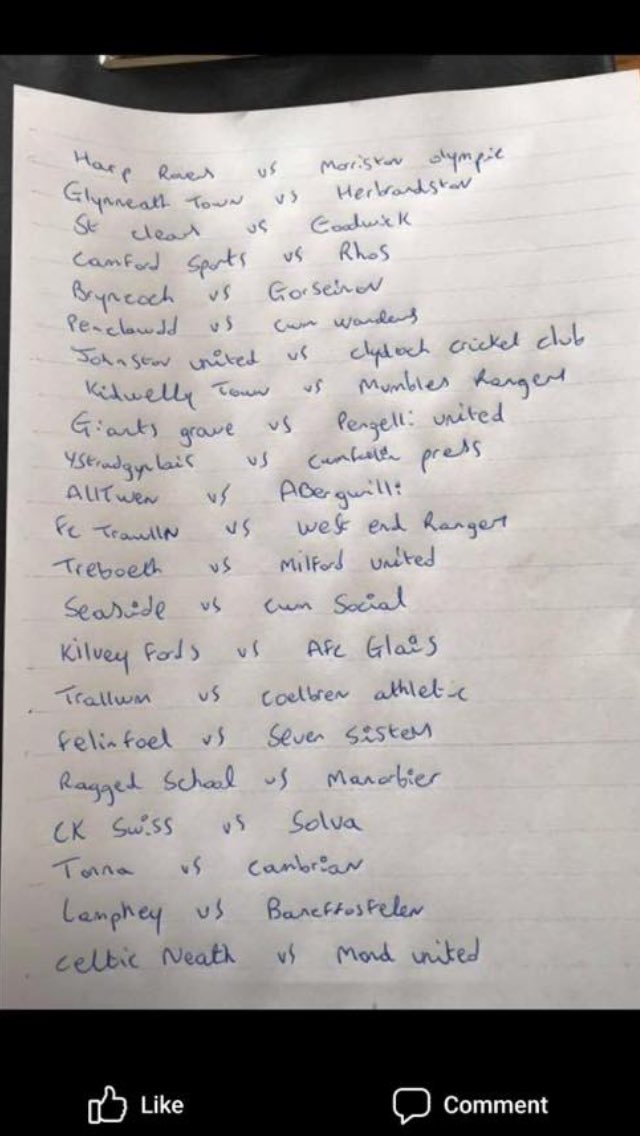 Harp Rovers vs Morriston Olympic
Glynneath Town vs Herbrandston
St Clears vs Goodwick
Camford Sports vs Rhos
Bryncoch vs Gorseinon
Penclawdd vs Cwm Wanders
Johnston united vs Clydach cricket club
Kidwelly Town vs Mumbles Rangers
Giants grave vs Pengelli united
Ystradgynlais vs press
Alltwen vs Abergwilli
Fc Trawlln vs West end Rangers
Treboeth vs Milford united
Seaside vs Cwm Social
Kilvey Fords vs AFC Glais
Trallwn vs Coelbren athletic
Felinfoel vs Seven Sisters
Ragged School vs Manorbier
CK Swiss vs Solva
Tonna vs Cambrian
Lamphey vs Bancffosfelen
Celtic Neath vs Mond united
Like
Comment